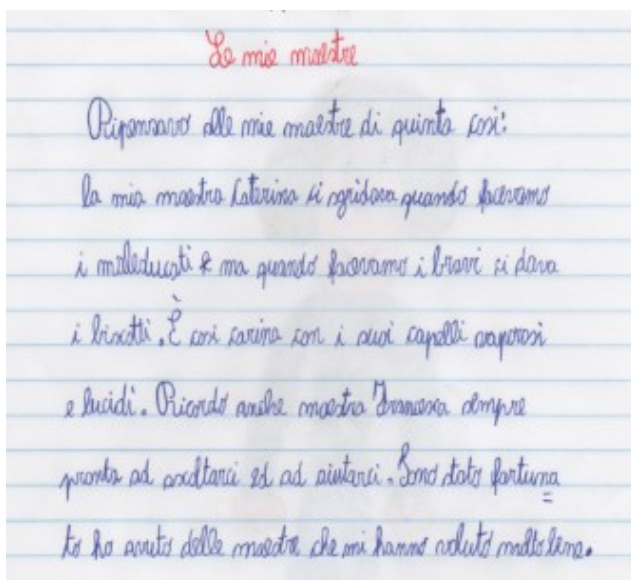 Le mie maestre
Ripensavo alle mie maestre di quinta così:
la mia maestra Caterina ci sgridava quando facevamo
i maleducati e ma quando facevamo i bravi ci dava
i biscotti. È così carina con i suoi capelli vaporosi
e lucidi. Ricordo anche maestra Francesca sempre
pronta ad ascoltarci ed ad aiutarci. Sono stato fortuna
to ho avuto delle maestre che mi hanno voluto molto bene.